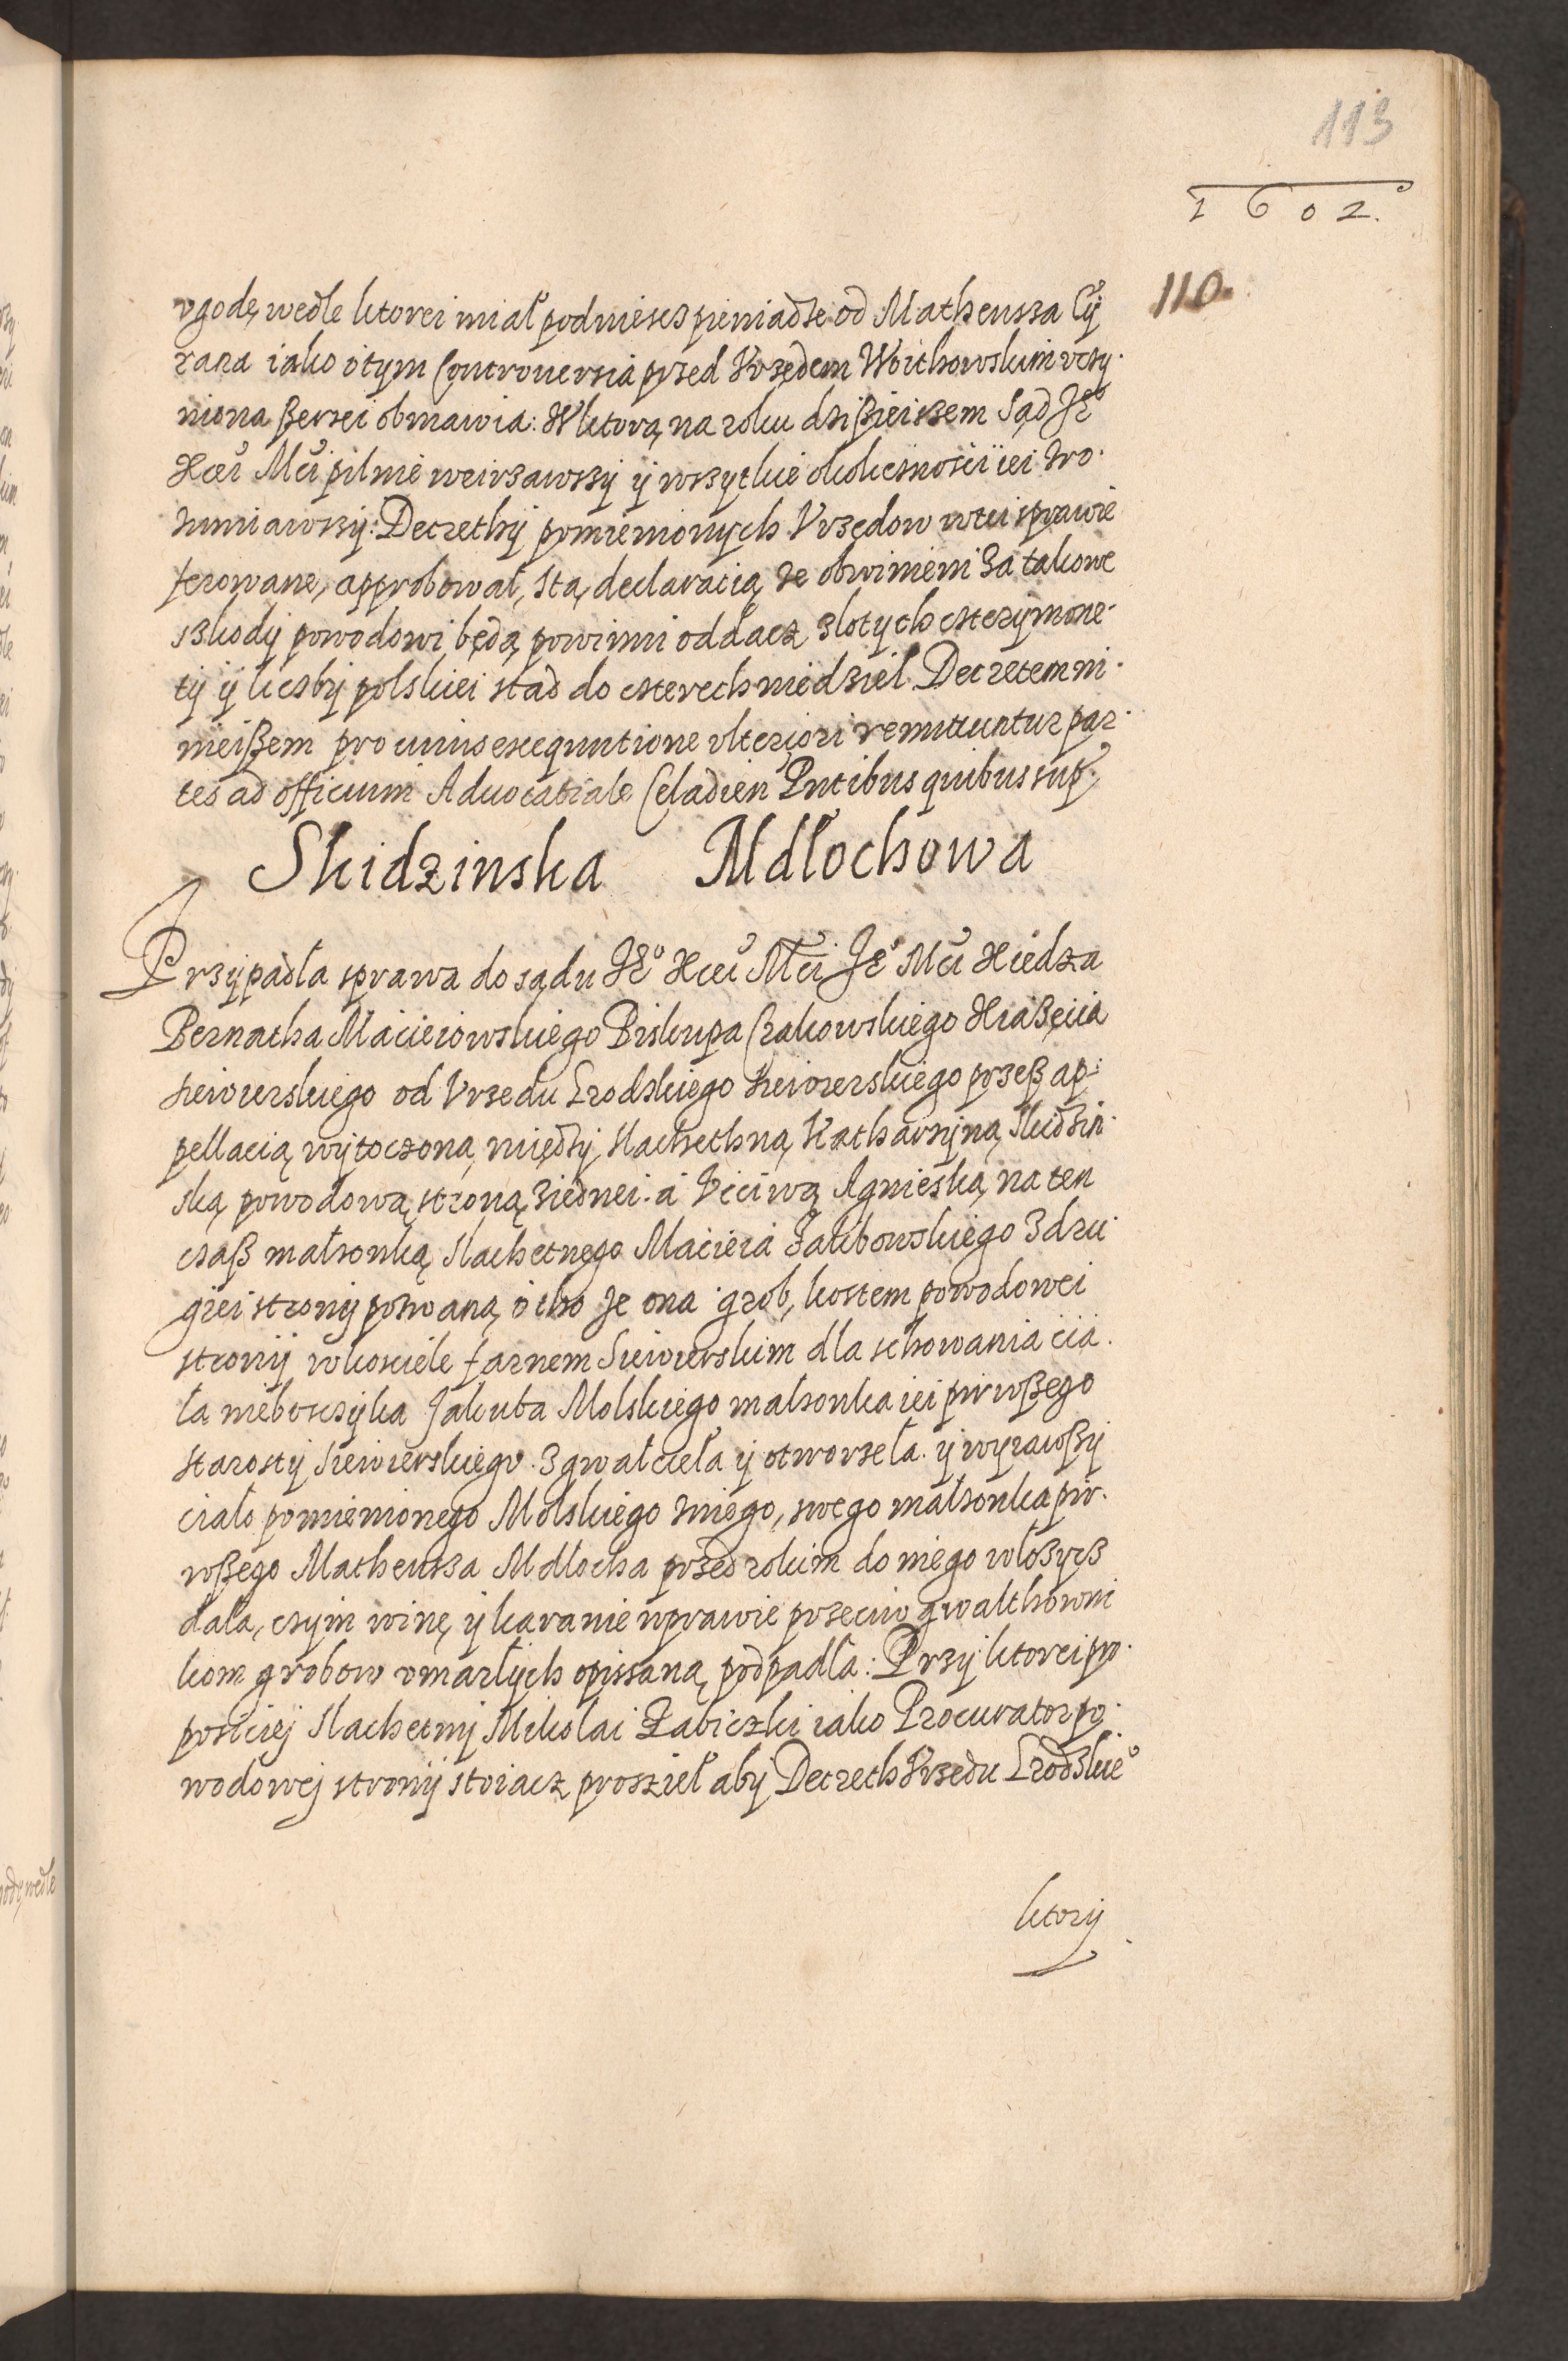 113
1602.
110.
vgodę wedle ktorei miał podniescz pieniądze od Matheussa Cÿ
rana iako o tym Controuersia przed Vrzędem Woithowskim vczy-
niona szerzei obmawia: W ktorą na roku dziszieiszem Sąd Je°
Xcei Mci pilnie weirzawszÿ ÿ wszytkie okolicznosci iei zro-
zumiawszÿ: Decrethÿ pomienionych Vrzędow w tei sprawie
ferowane, approbował, s tą declaracią że obwinieni za takowe
szkodÿ powodowi będą powinni oddacz złotych czterÿ mone-
tÿ ÿ liczbÿ polskiei stąd do czterech niedziel Decretem ni-
nieiszem pro cuius exequutione vlteriori remittuntur par-
tes ad officium Aduocatiale Celadien Pntibus quibus sup.
Skidzinska Mdłochowa
Przÿpadła sprawa do sądu Je° Xcei Mci Je° Mci Xiedza
Bernatha Macieiowskiego Biskupa Crakowskiego Xiąszęcia
Siewierskiego od Vrzedu Grodzkiego Siewierskiego przesz ap-
pellacią wÿtoczona, międzÿ Slachethną Katharzÿną Skidzin-
ską powodową stroną z iednei. a Vcciwą Agnieszką na ten
czasz małzonką Slachetnego Macieia Jakubowskiego z dru-
giei stronÿ pozwaną, o tho że ona grob, kostem powodowei
stronÿ w kosciele farnem Siewierskim dla schowania cia-
ła nieboszczÿka Jakuba Molskiego małzonka iei pirwszego
Starostÿ Siewierskiego. zgwałcieła ÿ otworzeła. ÿ wyiawszÿ
ciało pomienionego Molskiego zniego, swego małzonka pir-
wszego Matheussa Mdłocha przed rokim do niego włozÿcz
dała, czÿm winę ÿ karanie w prawie przeciw gwałthowni
kom grobow vmarłÿch opissaną podpadła: Przÿ ktorei pro-
posiciej Slachetnÿ Mikolai Żabiczki iako Procurator po-
wodowej stronÿ stoiacz prosziel abÿ Decreth Vrzedu Grodzkie°
ktorÿ